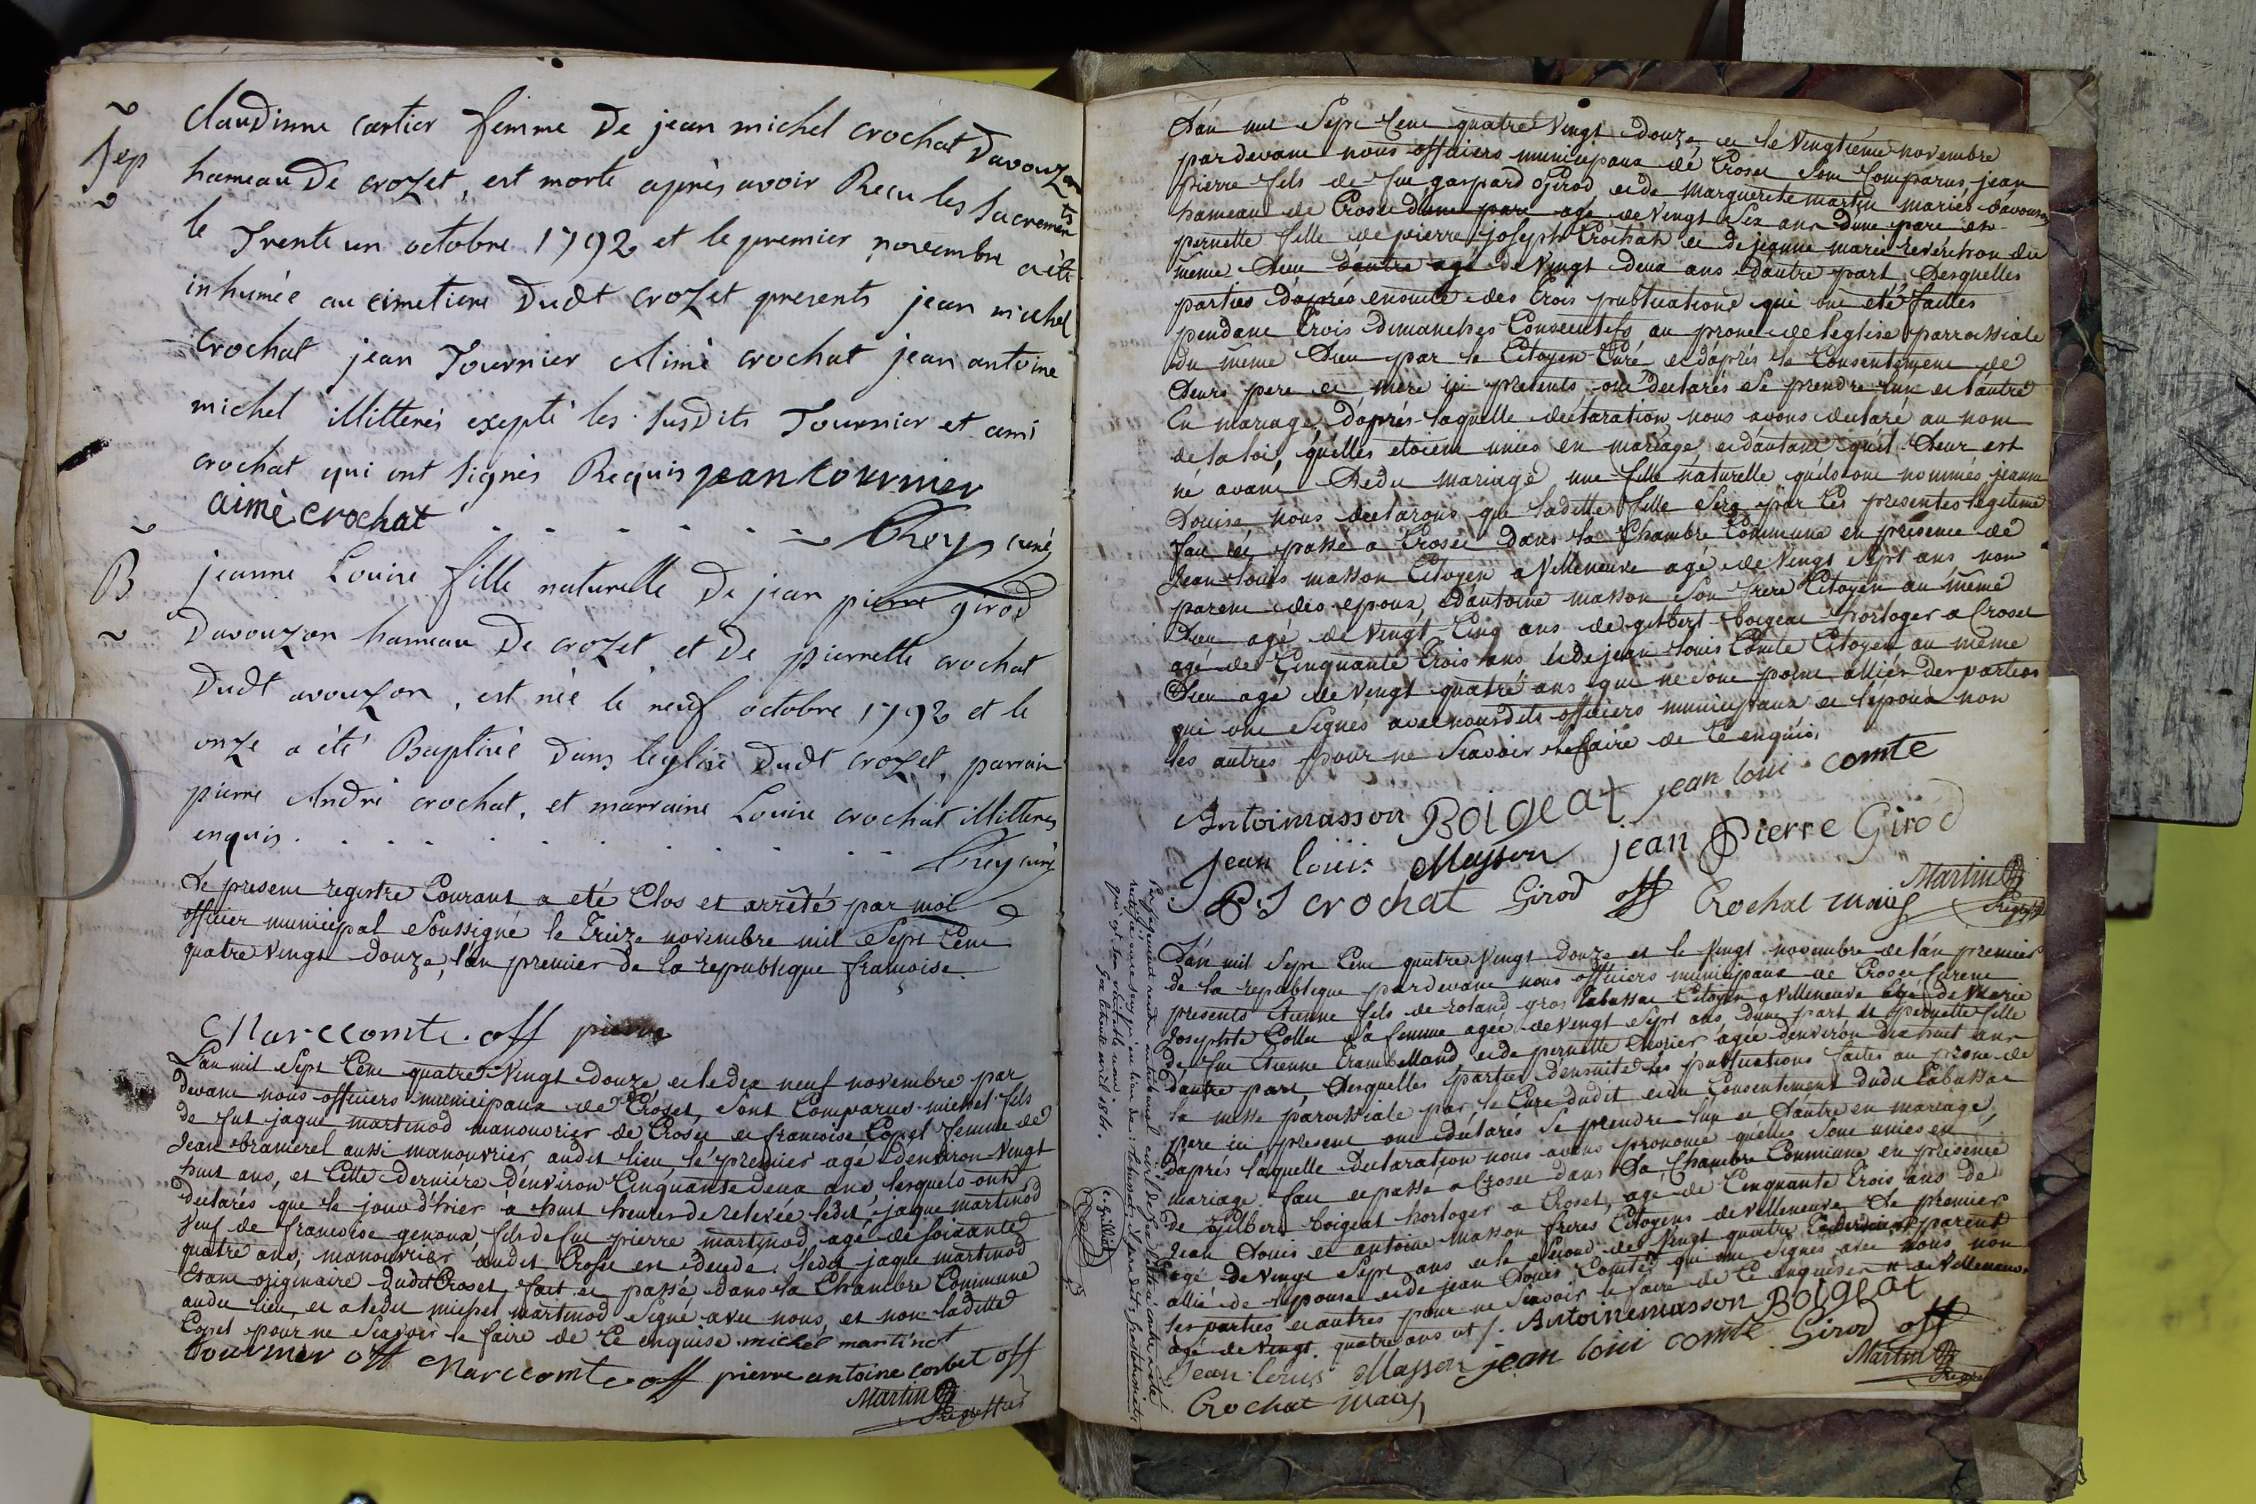 Sep
claudinne cartier femme de jean michel crochat davouzon
hameau de crozet, est morte aprés avoir Recu les sacrements
le Trente un octobre 1792 et le premier novembre a été
inhumée au cimetiere dudt crozet presents jean michel
Crochat jean Tournier Aimé crochat jean antoine
michel illitterés exepté les susdits Tournier et aimé
crochat qui ont signés Requis jean tournier
aimé crochat
Rey curé
B
jeanne Louise fille naturelle de jean pierre girod
Davouzon hameau De crozet et De pierrette crochat
Dudt avouzon, est née le neuf octobre 1792 et le
onze a été Baptisé dans leglise dudt crozet, parrain
pierre André crochat, et marraine Louise crochat illitteres
enquis.
Rey curé
Le present registre Courant a eté Clos et arrêté par moi
officier municipal Soussigné le Treize novembre mil Sept Cent
quatre vingt douze, l'an premier de la republique françoise.
Marccomte. off pierre
L'an mil Sept Cent quatre Vingt douze et le dix neuf novembre par
devant nous officiers municipaux de Croset, sont Comparus michel fils
de fut jaque martinod manouvrier de Croset et francoise Copel femme de
Jean bramerel aussi manouvrier audit lieu, le premier agé denviron Vingt
huit ans, et Cette derniére d'environ Cinquante deux ans, lesquels ont
declarés que le jour d'hier à huit heures de relevée ledit jaque martinod
veuf de francoise genoux fils de fut pierre martinod, agé de soixante
quatre ans, manouvrier audit Croset est decedé, ledit jaque martinod
etant originaire dudit Croset, fait et passé dans la Chambre Commune
audit lieu, et a ledit michel martinod signé avec nous, et non ladite
Copel pour ne Scavoir le faire de Ce enquise michel martinod
tournier off Marccomte off pierre antoine corbet off
Martin
Sécrettaire
L'an mil Sept Cent quatre Vingt douze, et le Vingtieme novembre
pardevant nous officiers municipaux de Croset Sont Comparus, jean
pierre fils de fut gaspard Girod et de Marguerite martin mariés davouson
hameau de Croset dune part agé de vingt six ans dune part et
pernette fille de pierre joseph Crochat et de jeanne marie reverchon du
même Lieu dautre agé de Vingt deux ans dautre part, Lesquelles
parties d'aprés ensuite des trois publications qui ont eté faites
pendant trois Dimanches Consecutifs au prone de leglise parroissiale
du même Lieu par le Citoyen Curé et d'aprés le Consentement de
Leurs pere et mere ici presents, ont declarés se prendre lun et lautre
en mariage, Daprés laquelle declaration, nous avons declaré au nom
de la loi, qu'elles etoient unies en mariage, et dautant quil Leur est
né avant Ledit mariage, une fille naturelle quils ont nommés jeanne
Louise nous declarons que ladite fille sera par Ces presentes legitime
fait et passé a Croset dans la Chambre Commune en presence de
Jean Louis masson Citoyen a Villeneuve agé de Vingt sept ans non
parent des epoux, d'antoine masson Son frere Citoyen au même
Lieu agé de Vingt Cinq ans de gilbert boigeat horloger a Croset
agé de Cinquante trois ans et de jean Louis Comte Citoyen au même
Lieu agé de Vingt quatre ans qui ne sont point alliés des parties
qui ont Signés avec nousdits officiers municipaux et lepoux non
les autres pour ne Scavoir le faire de Ce enquis.
Antoimasson Boigeat jean loui comte
jean louis Masson jean Pierre Girod
P.J crochat Girod off Crochat maire
Martin
Sécret
L'an mil Sept Cent quatre Vingt Douze et le Vingt novembre de l'an premier
de la republique pardevant nous officiers municipaux de Croset furent
presents Etienne fils de roland gros tabussat Citoyen a Villeneuve et de Marie
Josephte Collet Sa femme agée de Vingt Sept ans dune part et pernette fille
de fut Etienne Crambelland et de pernette agée denviron dix huit ans
dautre part, Lesquelles parties densuite des publications faites au prone de
la messe paroissiale par le Curé dudit et du Consentement dudit tabussat
pere ici present ont declarés se prendre lun et L'autre en mariage,
Daprés laquelle declaration nous avons prononcé qu'elles sont unies en
mariage, fait et passé a Croset dans La Chambre Commune en presence
de gilbert boigeat horloger a Croset, agé de Cinquante trois ans de
Jean Louis et antoine Masson freres Citoyens de Villeneuve Le premier
agé de Vingt Sept ans et le second de Vingt quatre parent
allié de lepouse et de jean Louis Comte qui ont signés avec nous non
les parties et autres pour ne Scavoir le faire de Ce enquises # de Villeneuve
agé de Vingt quatre ans
Antoinemasson Boigeat
Jean louis Masson jean loui comte Girod off
Crochat maire
Martin
Sécret